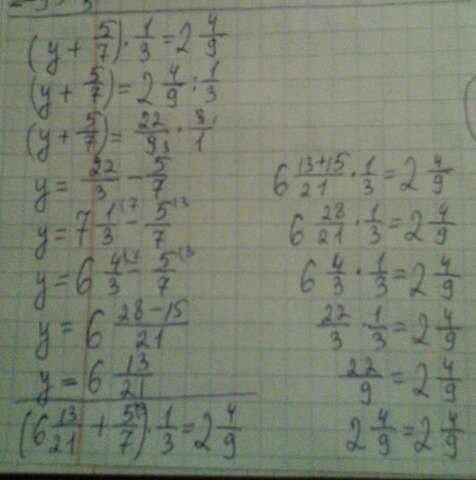 (y + 5/7) · 1/3 = 2 4/9
(y + 5/7) = 2 4/9 : 1/3
(y + 5/7) = 22/9 3 · 3 1/1
y = 22/3 - 5/7
y = 7 1/3 (7 - 5/7 (3
y = 6 4/3 (7 - 5/7 (3
y = 6 28-15/21
y = 6 13/21
(6 13/21 + 5/7 (3) · 1/3 = 2 4/9
6 13+15/21 · 1/3 = 2 4/9
6 28/21 · 1/3 = 2 4/9
6 4/3 · 1/3 = 2 4/9
22/3 · 1/3 = 2 4/9
22/9 = 2 4/9
2 4/9 = 2 4/9